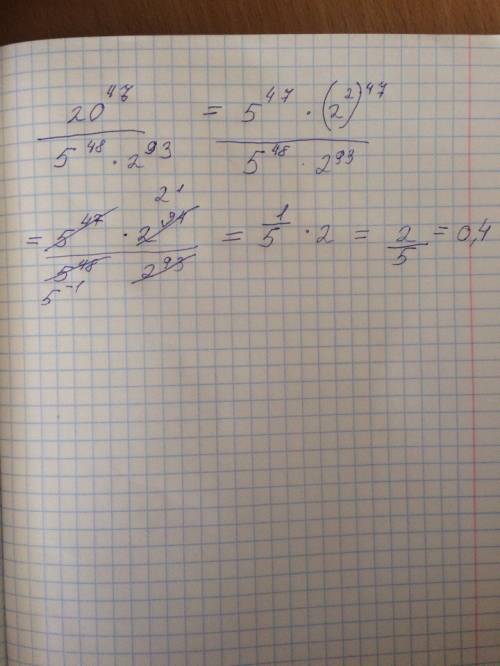 20^47 / (5^48 · 2^93) = 5^47 · (2^2)^47 / (5^48 · 2^93)
= 5^47 · 2^94 / (5^48 2^93) 2^1 5^-1 = 1/5 · 2 = 2/5 = 0,4